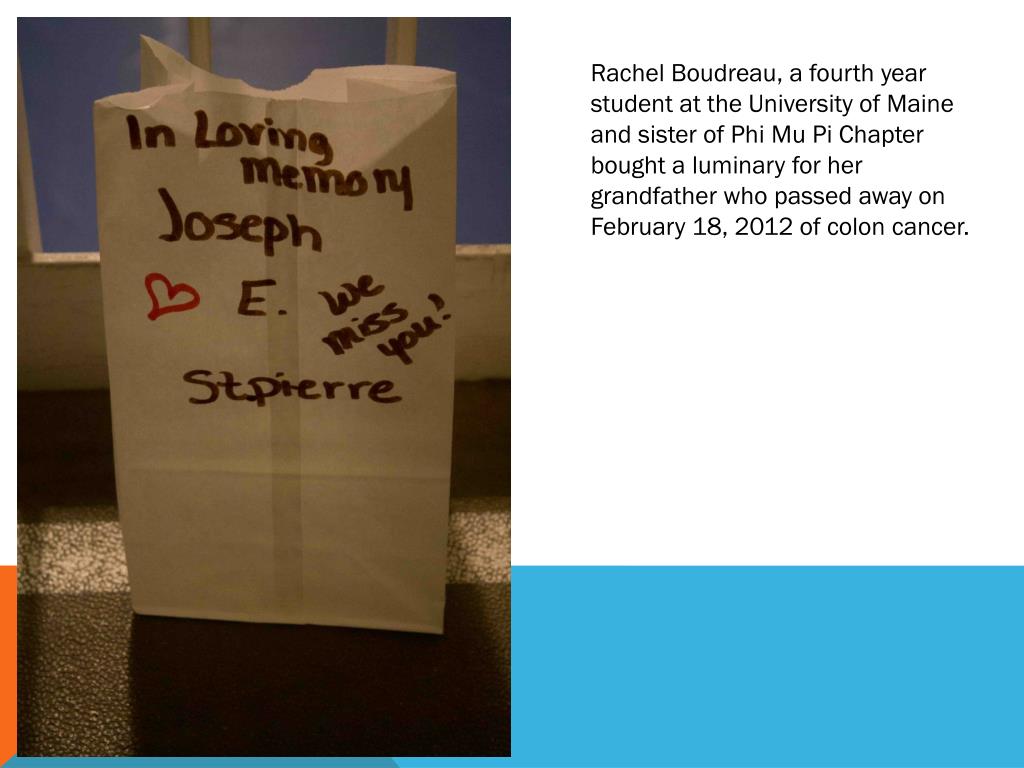 In Loving
memory
Joseph
E.
we
miss
you!
St.pierre
Rachel Boudreau, a fourth year
student at the University of Maine
and sister of Phi Mu Pi Chapter
bought a luminary for her
grandfather who passed away on
February 18, 2012 of colon cancer.